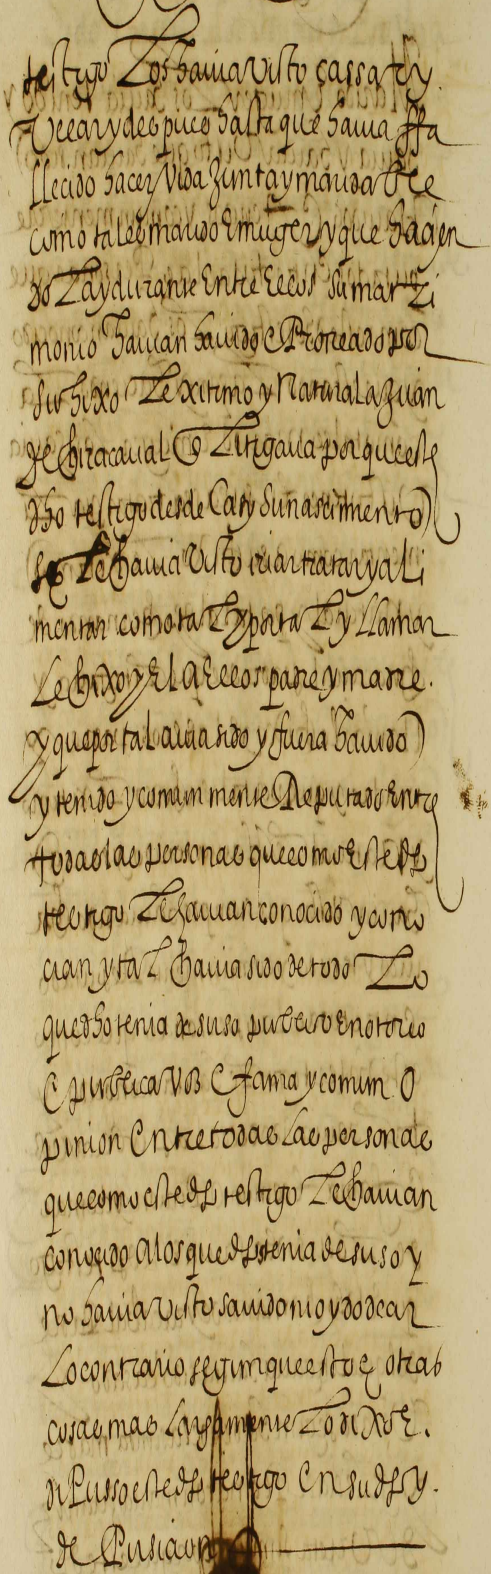 testigo los havia visto cassar y
velar y despues hasta que havia ffa
llecido hacer vida junta y maridable
como tales marido e muger y que hacien
do la y durante entre ellos su matri
monio havian havido e procreado por
su hixo lexitimo y natural a Juan
de Chiracaval q litigava por que este
dho testigo desde casy su nascimiento
se le havia visto criar tratar y ali
mentar como tal y por tal y llamar
le hixo y el a ellos padre y madre.
y que por tal avia sido y fuera havido
y tenido y comunmente reputado entre
todas las personas que como este dho
testigo le havian conocido y cono
cian y tal havia sido de todo lo
que dho tenia de suso publico e notorio
e publica voz e fama y comun o
pinion entre todas las personas
que como este dho testigo le havian
conocido a los que dho tenia de suso y
no havia visto savido ni oydo decir
lo contrario segun que esto e otras
cosas mas largamente lo dixo e.
depusso este dho testigo en su dho y.
de pusicion